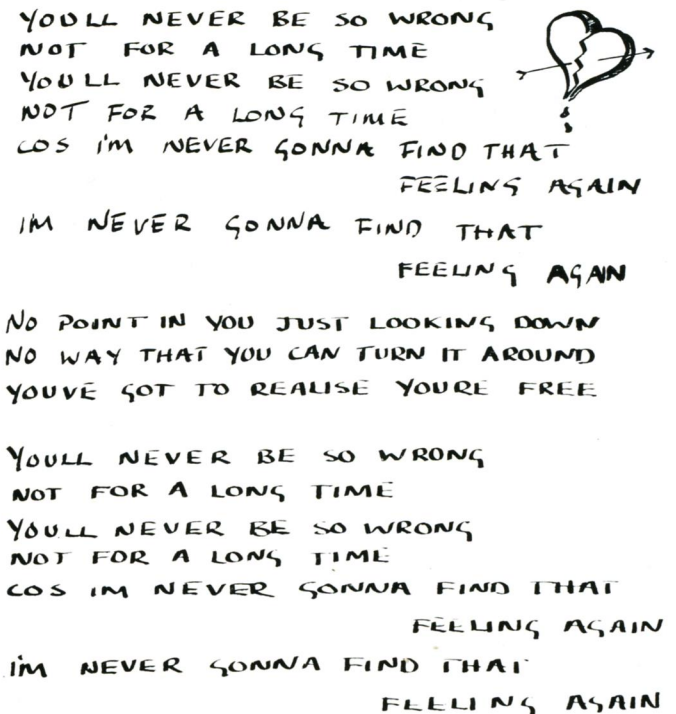 YOULL NEVER BE SO WRONG
NOT FOR A LONG TIME
YOULL NEVER BE SO WRONG
NOT FOR A LONG TIME
COS I'M NEVER GONNA FIND THAT
FEELING AGAIN
IM NEVER GONNA FIND THAT
FEELING AGAIN
NO POINT IN YOU JUST LOOKING DOWN
NO WAY THAT YOU CAN TURN IT AROUND
YOUVE GOT TO REALISE YOURE FREE
YOULL NEVER BE SO WRONG
NOT FOR A LONG TIME
YOULL NEVER BE SO WRONG
NOT FOR A LONG TIME
COS IM NEVER GONNA FIND THAT
FEELING AGAIN
I'M NEVER GONNA FIND THAT
FEELING AGAIN